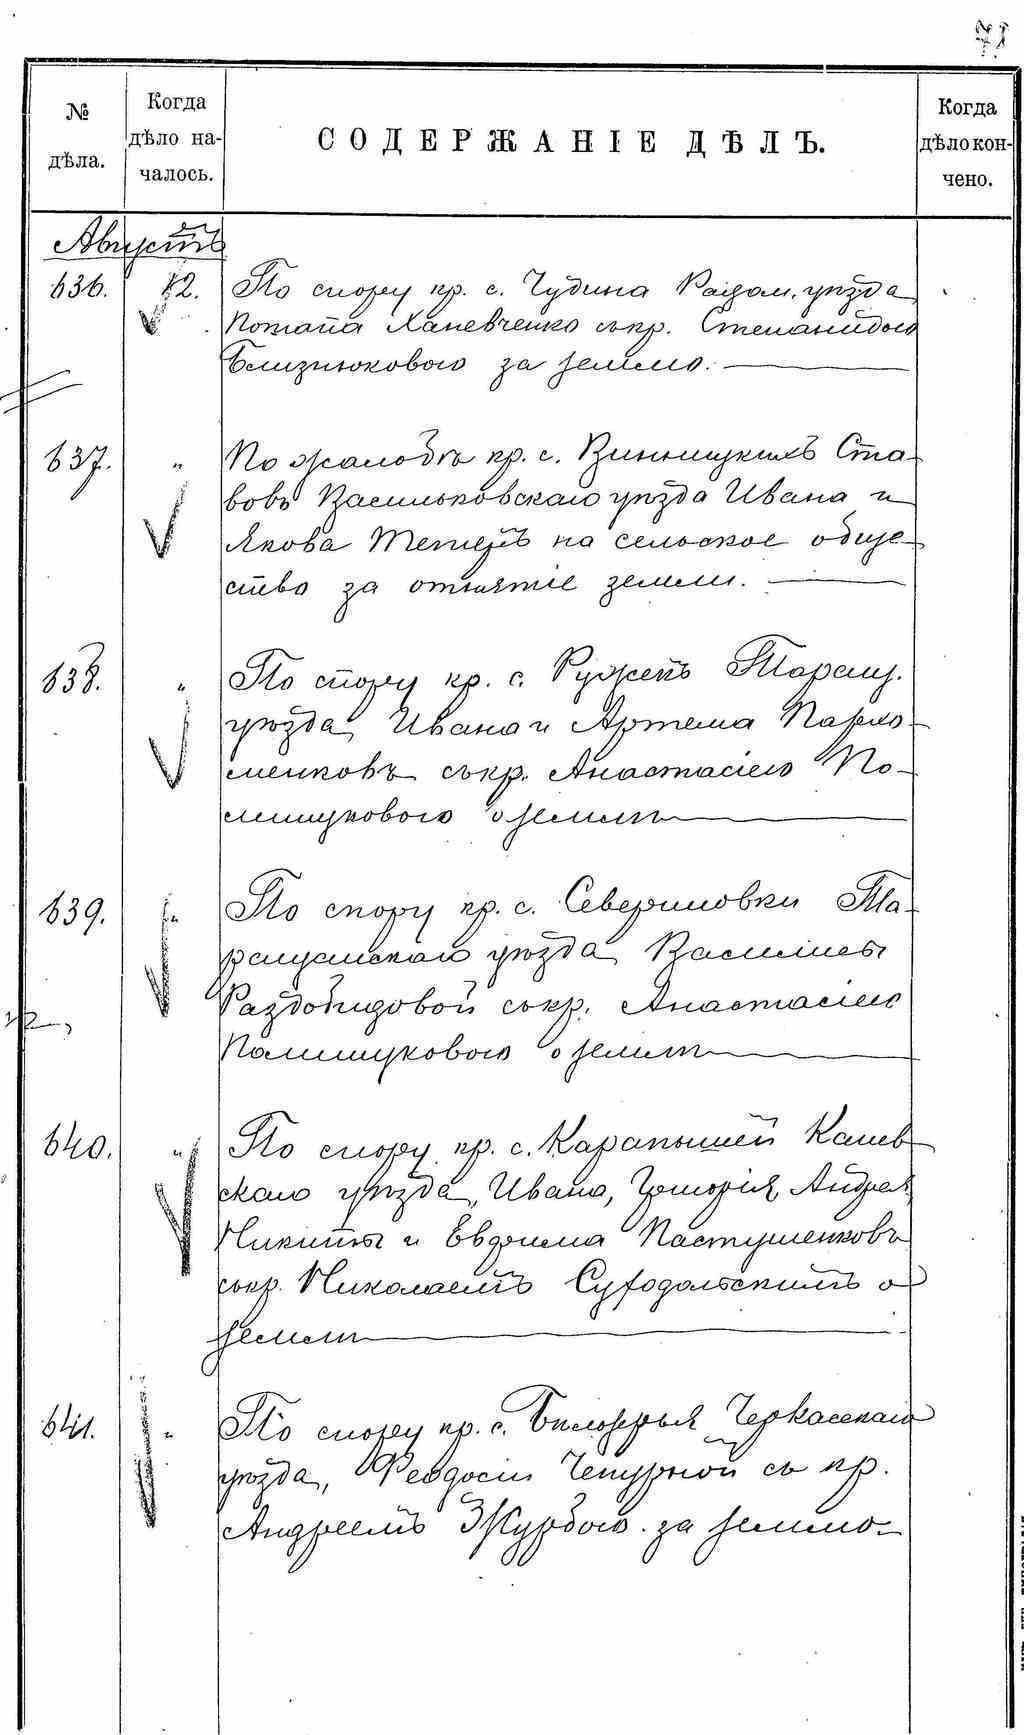 78
№ дѣла.
Когда дѣло на-чалось.
СОДЕРЖАНІЕ ДѢЛЪ.
Когда дѣло кон-чено.
Августъ
636. 12. По спору кр. с. Чудина Радом. уѣзда
Потапа Ханевченко съ кр. Степанидою
Близнюковою за землю.
637. " По жалобѣ кр. с. Винницкихъ Ста-
вовъ Васильковскаго уѣзда Ивана и
Якова Тетеръ на сельское обще-
ство за отнятіе земли.
638. " По спору кр. с. Ружекъ Таращ.
уѣзда Ивана и Артема Пархо-
менковъ съ кр. Анастасіею По-
лищуковою о землѣ
639. " По спору кр. с. Севериновки Та-
ращанскаго уѣзда Василисы
Раздобудовой съ кр. Анастасіею
Полищуковою о землѣ
640. " По спору кр. с. Карапышей Канев
скаго уѣзда, Ивана, Григорія, Андрея
Никиты и Евфима Пастушенковъ
съ кр. Николаемъ Суходольскимъ о
землѣ
641. " По спору кр. с. Бѣлозерья Черкасскаго
уѣзда, Феодосіи Чепурной съ кр.
Андреемъ Журбою за землю